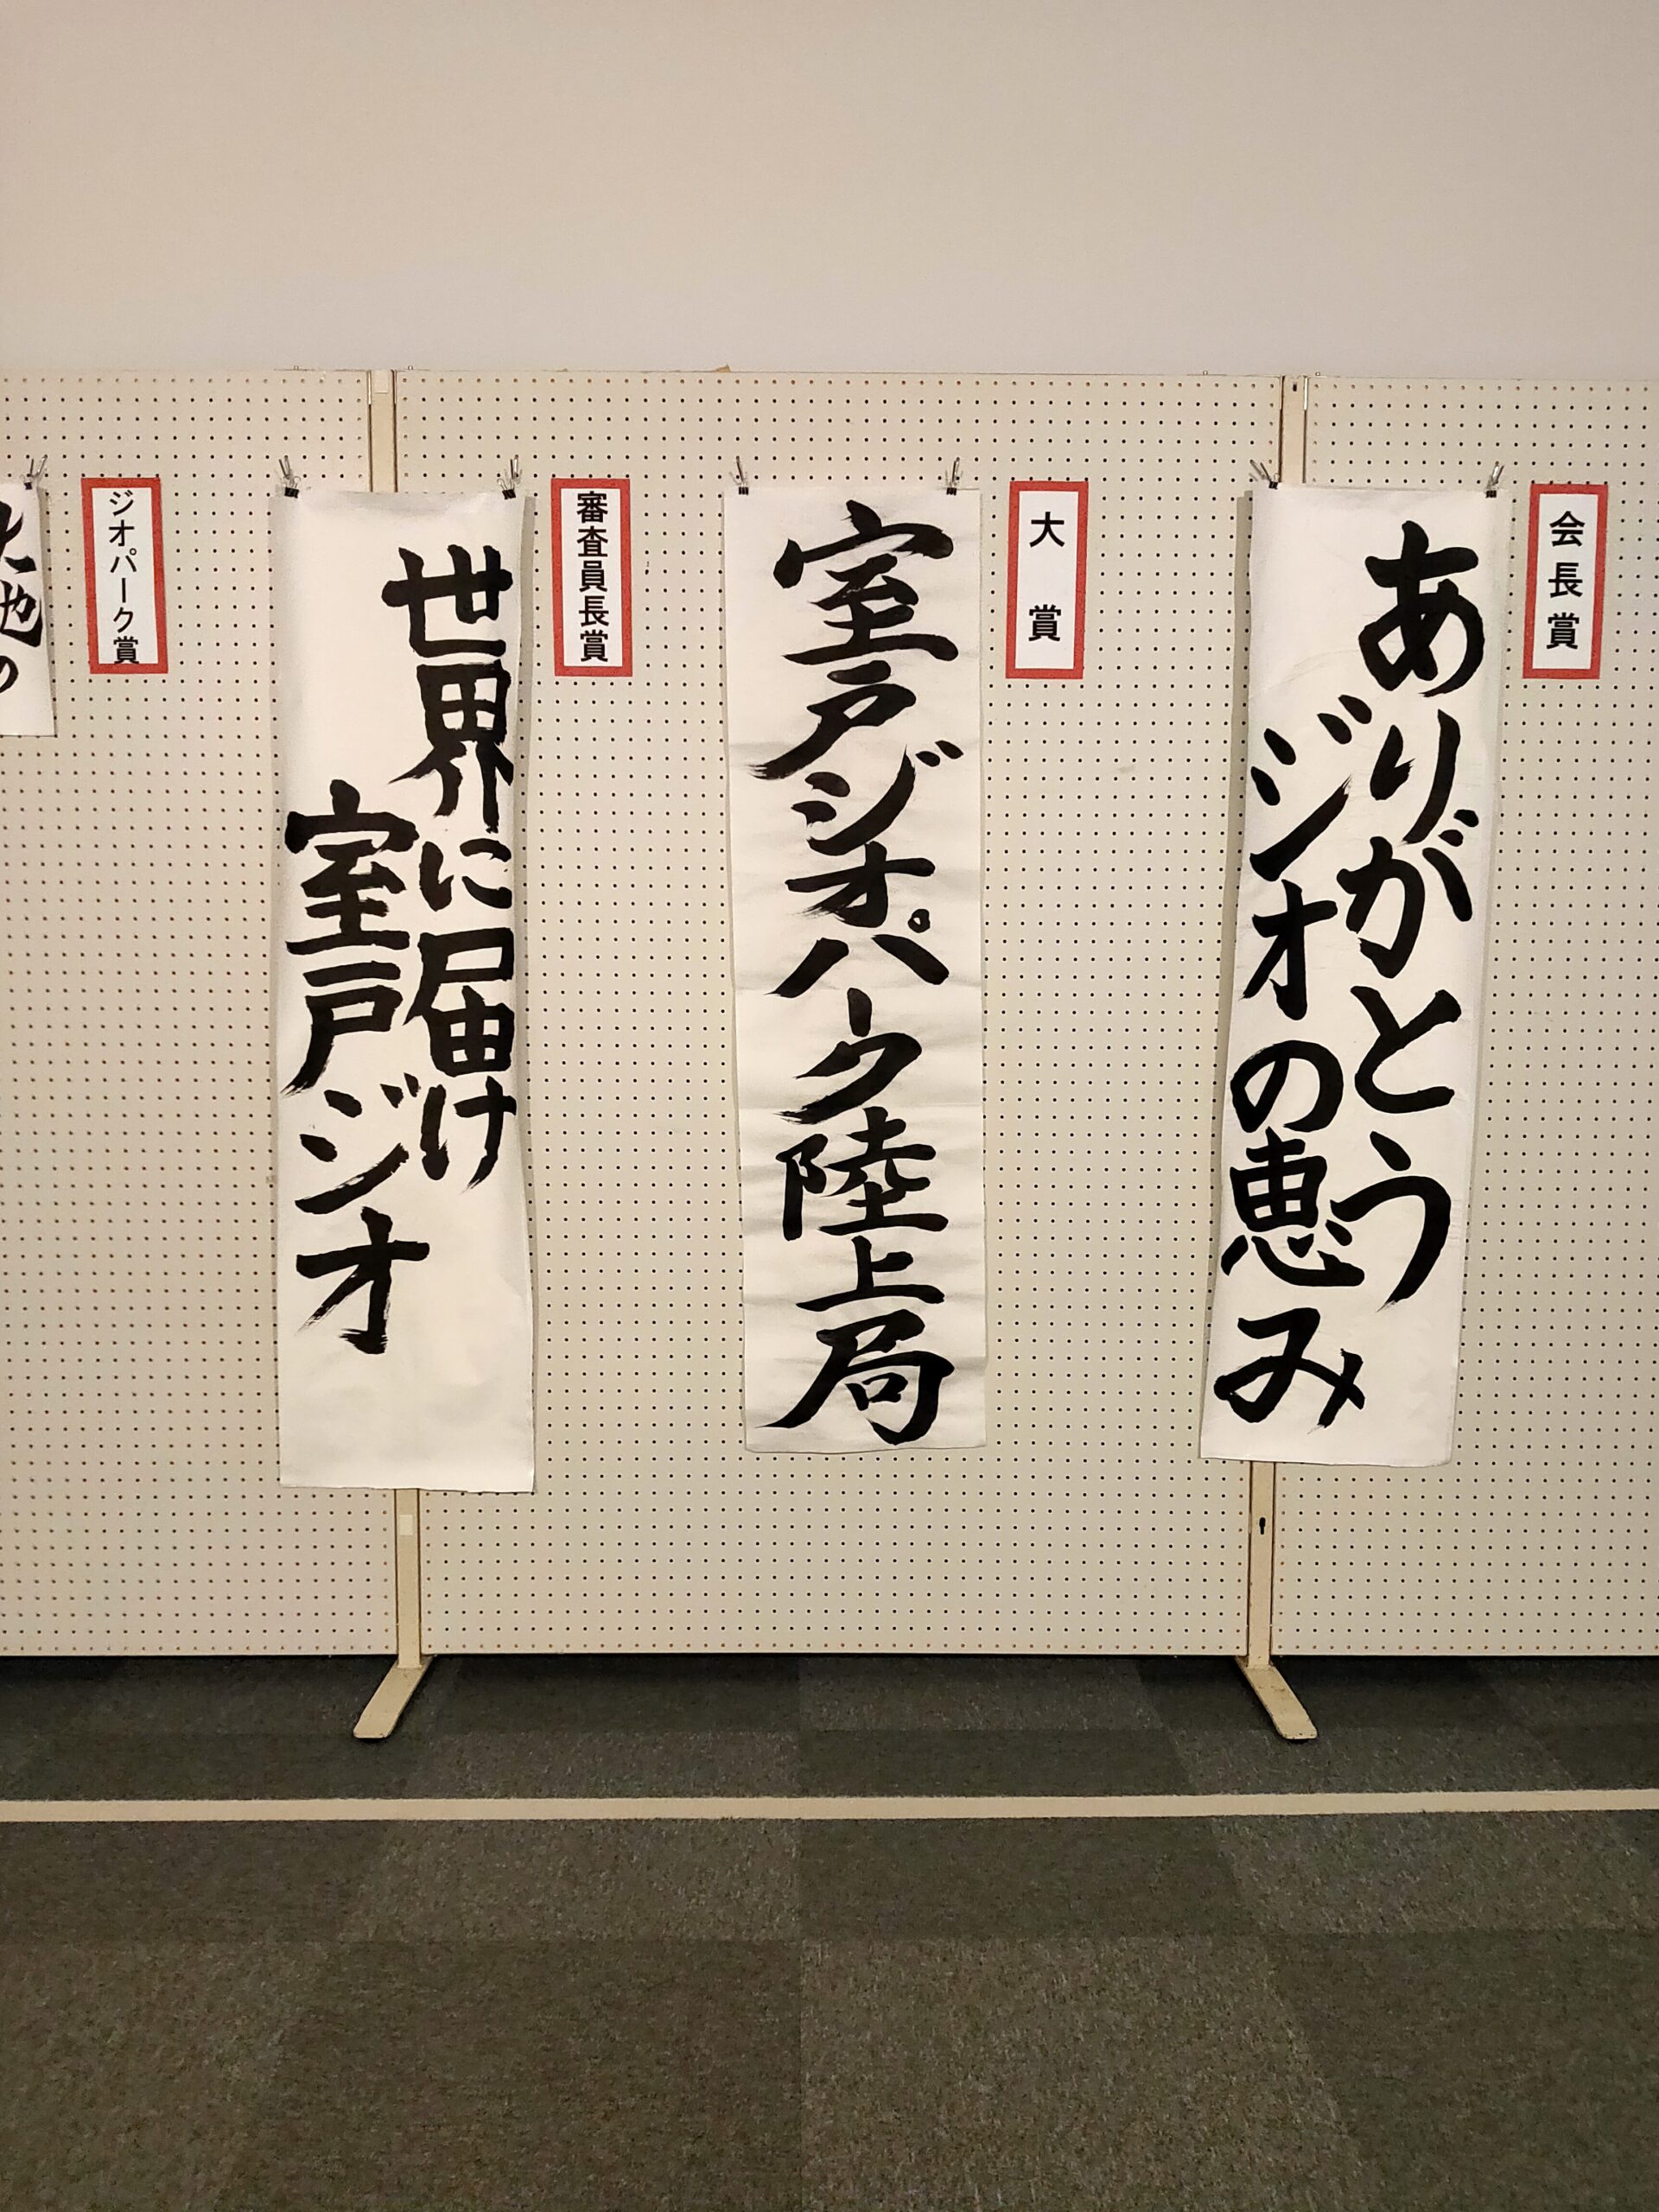 会長賞
ありがとう
ジオの恵み
大賞
室戸ジオパーク陸上局
審査員長賞
世界に届け
室戸ジオ
ジオパーク賞
大地の